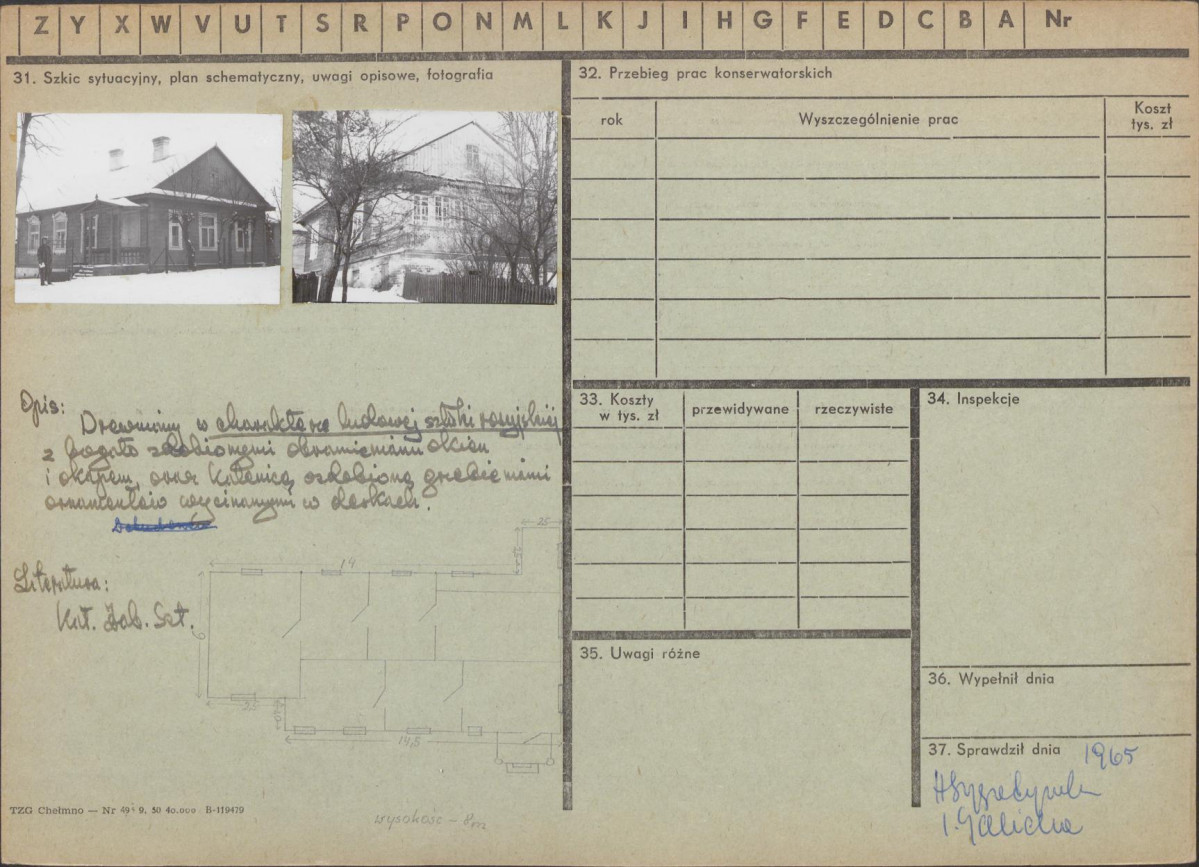 Z Y X W V U T S R P O N M L K J I H G F E D C B A Nr
31. Szkic sytuacyjny, plan schematyczny, uwagi opisowe, fotografia
Opis:
Drewniany w charakterze ludowej sztuki rosyjskiej
z bogato zdobionymi obramieniami okien
i okapem, oraz ozdobioną
ornamentów wycinanymi w deskach.
Literatura:
Kat. Zab. Szt.
25
19
6
25
14,5
wysokość – 8m
TZG Chełmno — Nr 49 9. 50 40.000 B-119479
32. Przebieg prac konserwatorskich
rok
Wyszczególnienie prac
Koszt
tys. zł
33. Koszty
w tys. zł
przewidywane
rzeczywiste
34. Inspekcje
35. Uwagi różne
36. Wypełnił dnia
37. Sprawdził dnia 1965
I. Galicka